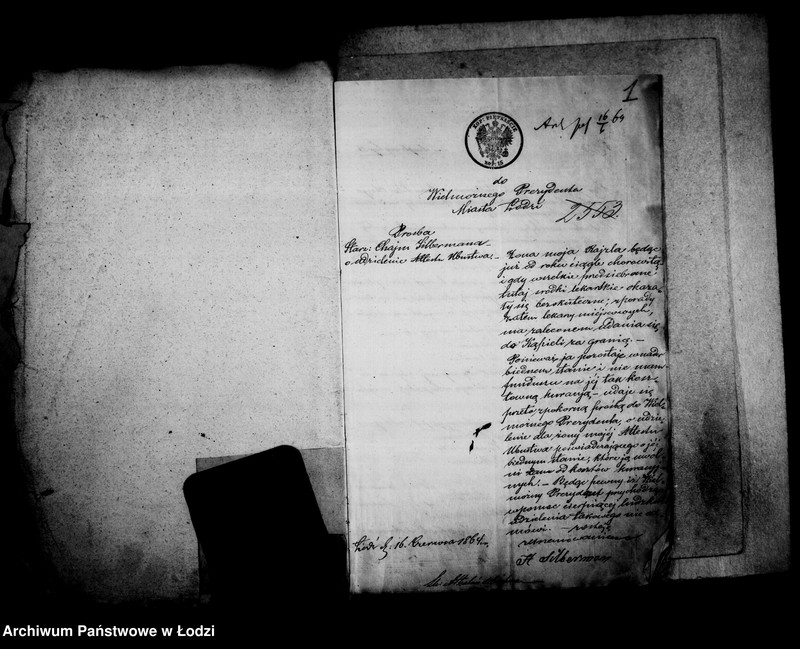 1
KOP. PIĘTNAŚCIE
KOP. 15
16/6 64
do
Wielmożnego Prezydenta
Miasta Łodzi
2553.
Prośba
Starz: Chajm Silbermana
o udzielenie Attestu Ubustwa
Żona moja Kajzla będąc
już od roku ciągle chorowitą
i gdy wszelkie przedsiębrane
tutaj srodki lekarskie okaza-
ły się bezskuteczne; z porady
zatem lekarzy miejscowych,
ma zaleconem udania się
do Kąpieli za granicę. —
Ponieważ ja pozostaję w nader
biednem stanie i nie mam
funduszu na jej tak kosz-
towną kuracją — udaję się
przeto z pokorną prośbą do Wiel-
możnego Prezydenta, o udzie-
lenie dla żony mojéj Attestu
Ubustwa poświadczającego o jéj
biednym stanie, które ją uwol-
ni od kosztów kuracyj-
nych. — Będąc pewny iż Wiel-
możny Prezydent
wpomoc cierpiącej ludzkości
udzielenia takowego nie od-
mówi. — zostaję
z uszanowaniem
H Silberman
Łódź d. 16. Czerwca 1864.
Archiwum Państwowe w Łodzi